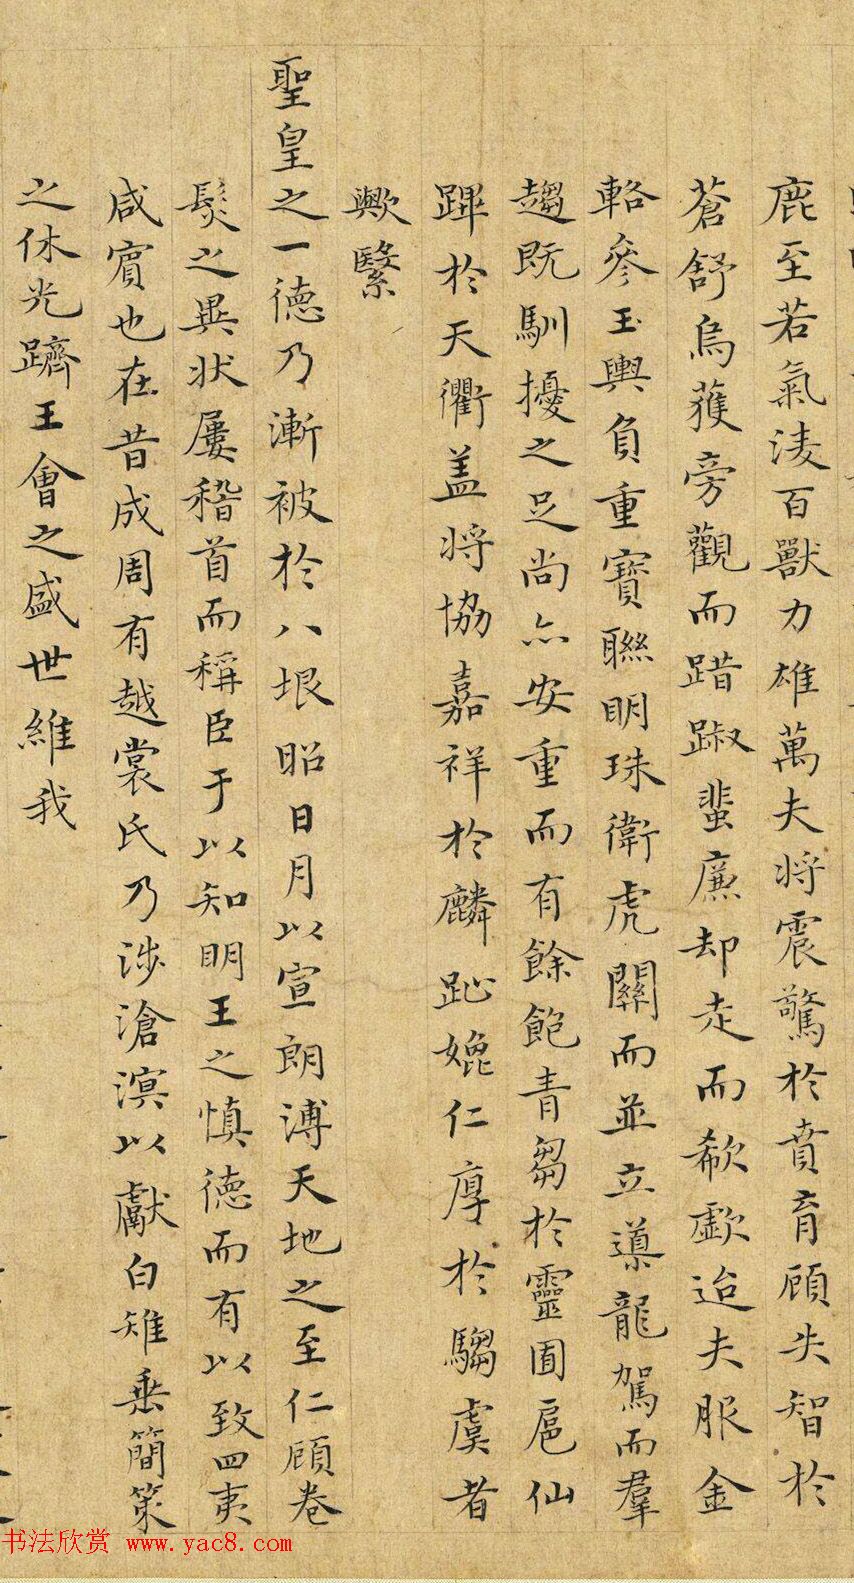 鹿至若氣淩百獸力雄萬夫將震驚於賁育顧失智於
蒼舒烏蒦旁觀而踖踧蜚廉却走而欷歔迨夫服金
輅參玉輿負重寶聯明珠衛虎關而並立導龍駕而羣
趨既馴擾之足尚亦安重而有餘飽青芻於靈囿扈仙
蹕於天衢盖將協嘉祥於麟趾媲仁厚於騶虞者
歟繄
聖皇之一德乃漸被於八垠昭日月以宣朗溥天地之至仁顧卷
髮之異状屢稽首而稱臣于以知明王之慎德而有以致四夷
咸賓也在昔成周有越裳氏乃涉滄溟以獻白雉垂簡策
之休光躋王會之盛世維我
书法欣赏 www.yac8.com